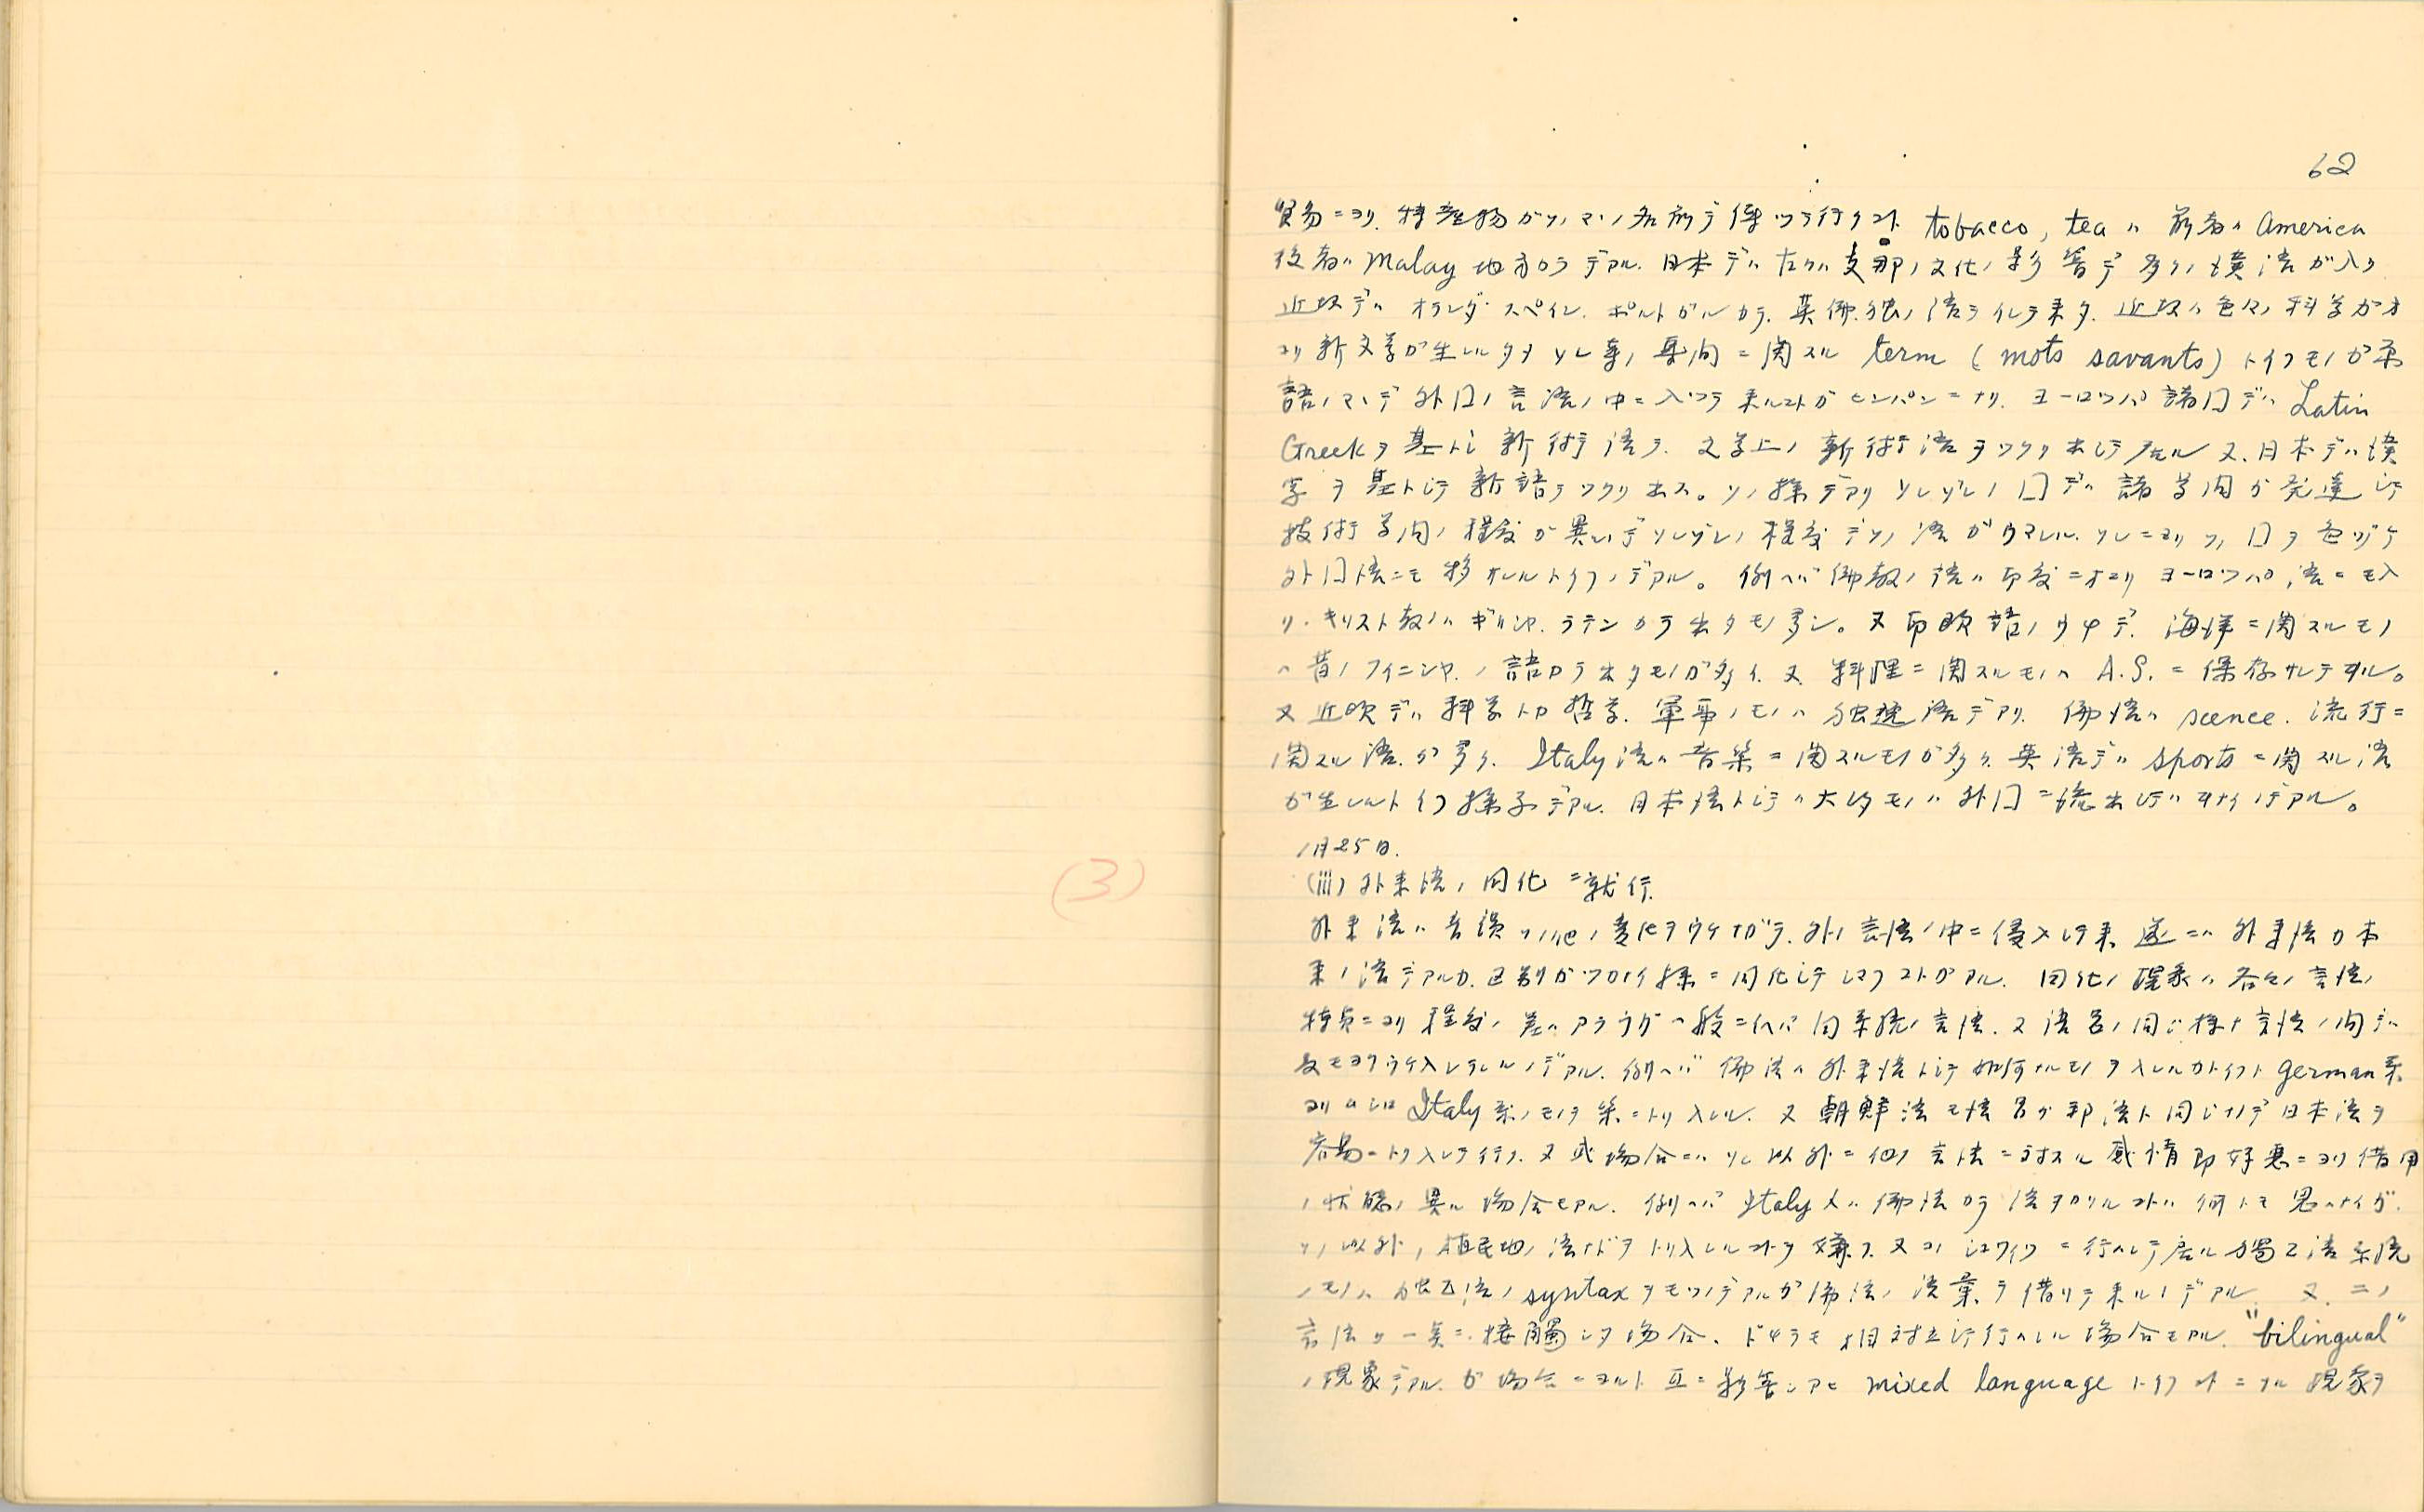 62
貿易ニヨリ. 特産物ガソノマヽノ名前デ傳ツテ行クコト. tobacco, tea ハ 前者ハ America
後者ハ Malay 地方カラデアル. 日本デハ古クハ支那ノ文化ノ影響デ多クノ漢語ガ入リ
近頃デハ オランダ スペイン. ポルトガルカラ. 英佛独ノ語ヲイレテ来タ. 近頃ハ色々ノ科学ガオ
コリ新文学ガ生レルタメ ソレ等ノ専門ニ関スル term (mots savants) トイフモノガ原
語ノマヽデ外囗ノ言語ノ中ニ入ツテ来ルコトガヒンパンニナリ. ヨーロッパ諸囗デハ Latin
Greek ヲ基トシ新術語ヲ. 文学上ノ新術語ヲツクリ出シテ居ル 又. 日本デハ漢
字ヲ基トシテ新語ヲツクリ出ス。ソノ様デアリ ソレゾレノ囗デハ諸学問ガ発達シテ
技術学問ノ程度ガ異ルノデソレゾレノ程度デソノ語ガウマレル. ソレニヨリソノ囗ヲ色ヅケ
外囗語ニモ移サレルトイフノデアル。例ヘバ佛教ノ語ハ印度ニオコリ ヨーロッパ語ニモ入
リ. キリスト教ノハギリシヤ. ラテンカラ出タモノ多シ。又印欧語ノウチデ. 海洋ニ関スルモノ
ハ昔ノフイニシヤ. ノ語カラ出タモノガ多イ. 又 料理ニ関スルモノハ A.S. ニ保存サレテヰル。
又近頃デハ科学トカ哲学. 軍事ノモノハ独逸語デアリ. 佛語ハ scence. 流行ニ
関スル語. ガ多ク. Italy 語ハ音楽ニ関スルモノガ多ク. 英語デハ sports ニ関スル語
ガ生レルトイフ様子デアル. 日本語トシテハ大シタモノハ外囗ニ流出シテハヰナイノデアル。
1月25日.
(iii) 外来語ノ同化ニ就イテ.
外来語ハ音韻ソノ他ノ変化ヲウケナガラ. 外ノ言語ノ中ニ侵入シテ来. 遂ニハ外来語カ本
来ノ語デアルカ. 区別ガツカナイ様ニ同化シテシマフコトガアル. 同化ノ現象ハ各々ノ言語ノ
特質ニヨリ程度ノ差ハアラウガ一般ニイヘバ同系統ノ言語. 又語呂ノ同ジ様ナ言語ノ間デハ
最モヨクウケ入レラレルノデアル. 例ヘバ佛語ハ外来語トシテ如何ナルモノヲ入レルカトイフト german 系
ヨリムシロ Italy 系ノモノヲ楽ニトリ入レル. 又朝鮮語モ語呂ガ邦語ト同ジナノデ日本語ヲ
容易ニトリ入レテ行ク. 又或場合ニハソレ以外ニ他ノ言語ニ対スル感情即好悪ニヨリ借用
ノ状態ノ異ル場合モアル. 例ヘバ Italy 人ハ佛語カラ語ヲカリルコトハ何トモ思ハナイガ.
ソノ以外ノ植民地ノ語ナドヲトリ入レルコトヲ嫌フ. 又 ニ行ハレテ居ル独乙語系統
ノモノハ独乙語ノ syntax ヲモツノデアルガ佛語ノ語彙ヲ借リテ来ルノデアル. 又. 二ノ
言語ガ一矣ニ接觸シタ場合. ドチラモ相対立シテ行ハレル場合モアル. "bilingual"
ノ現象デアル. ガ場合ニヨルト互ニ影響シアヒ mixed language トイフコトニナル現象ヲ
(3)